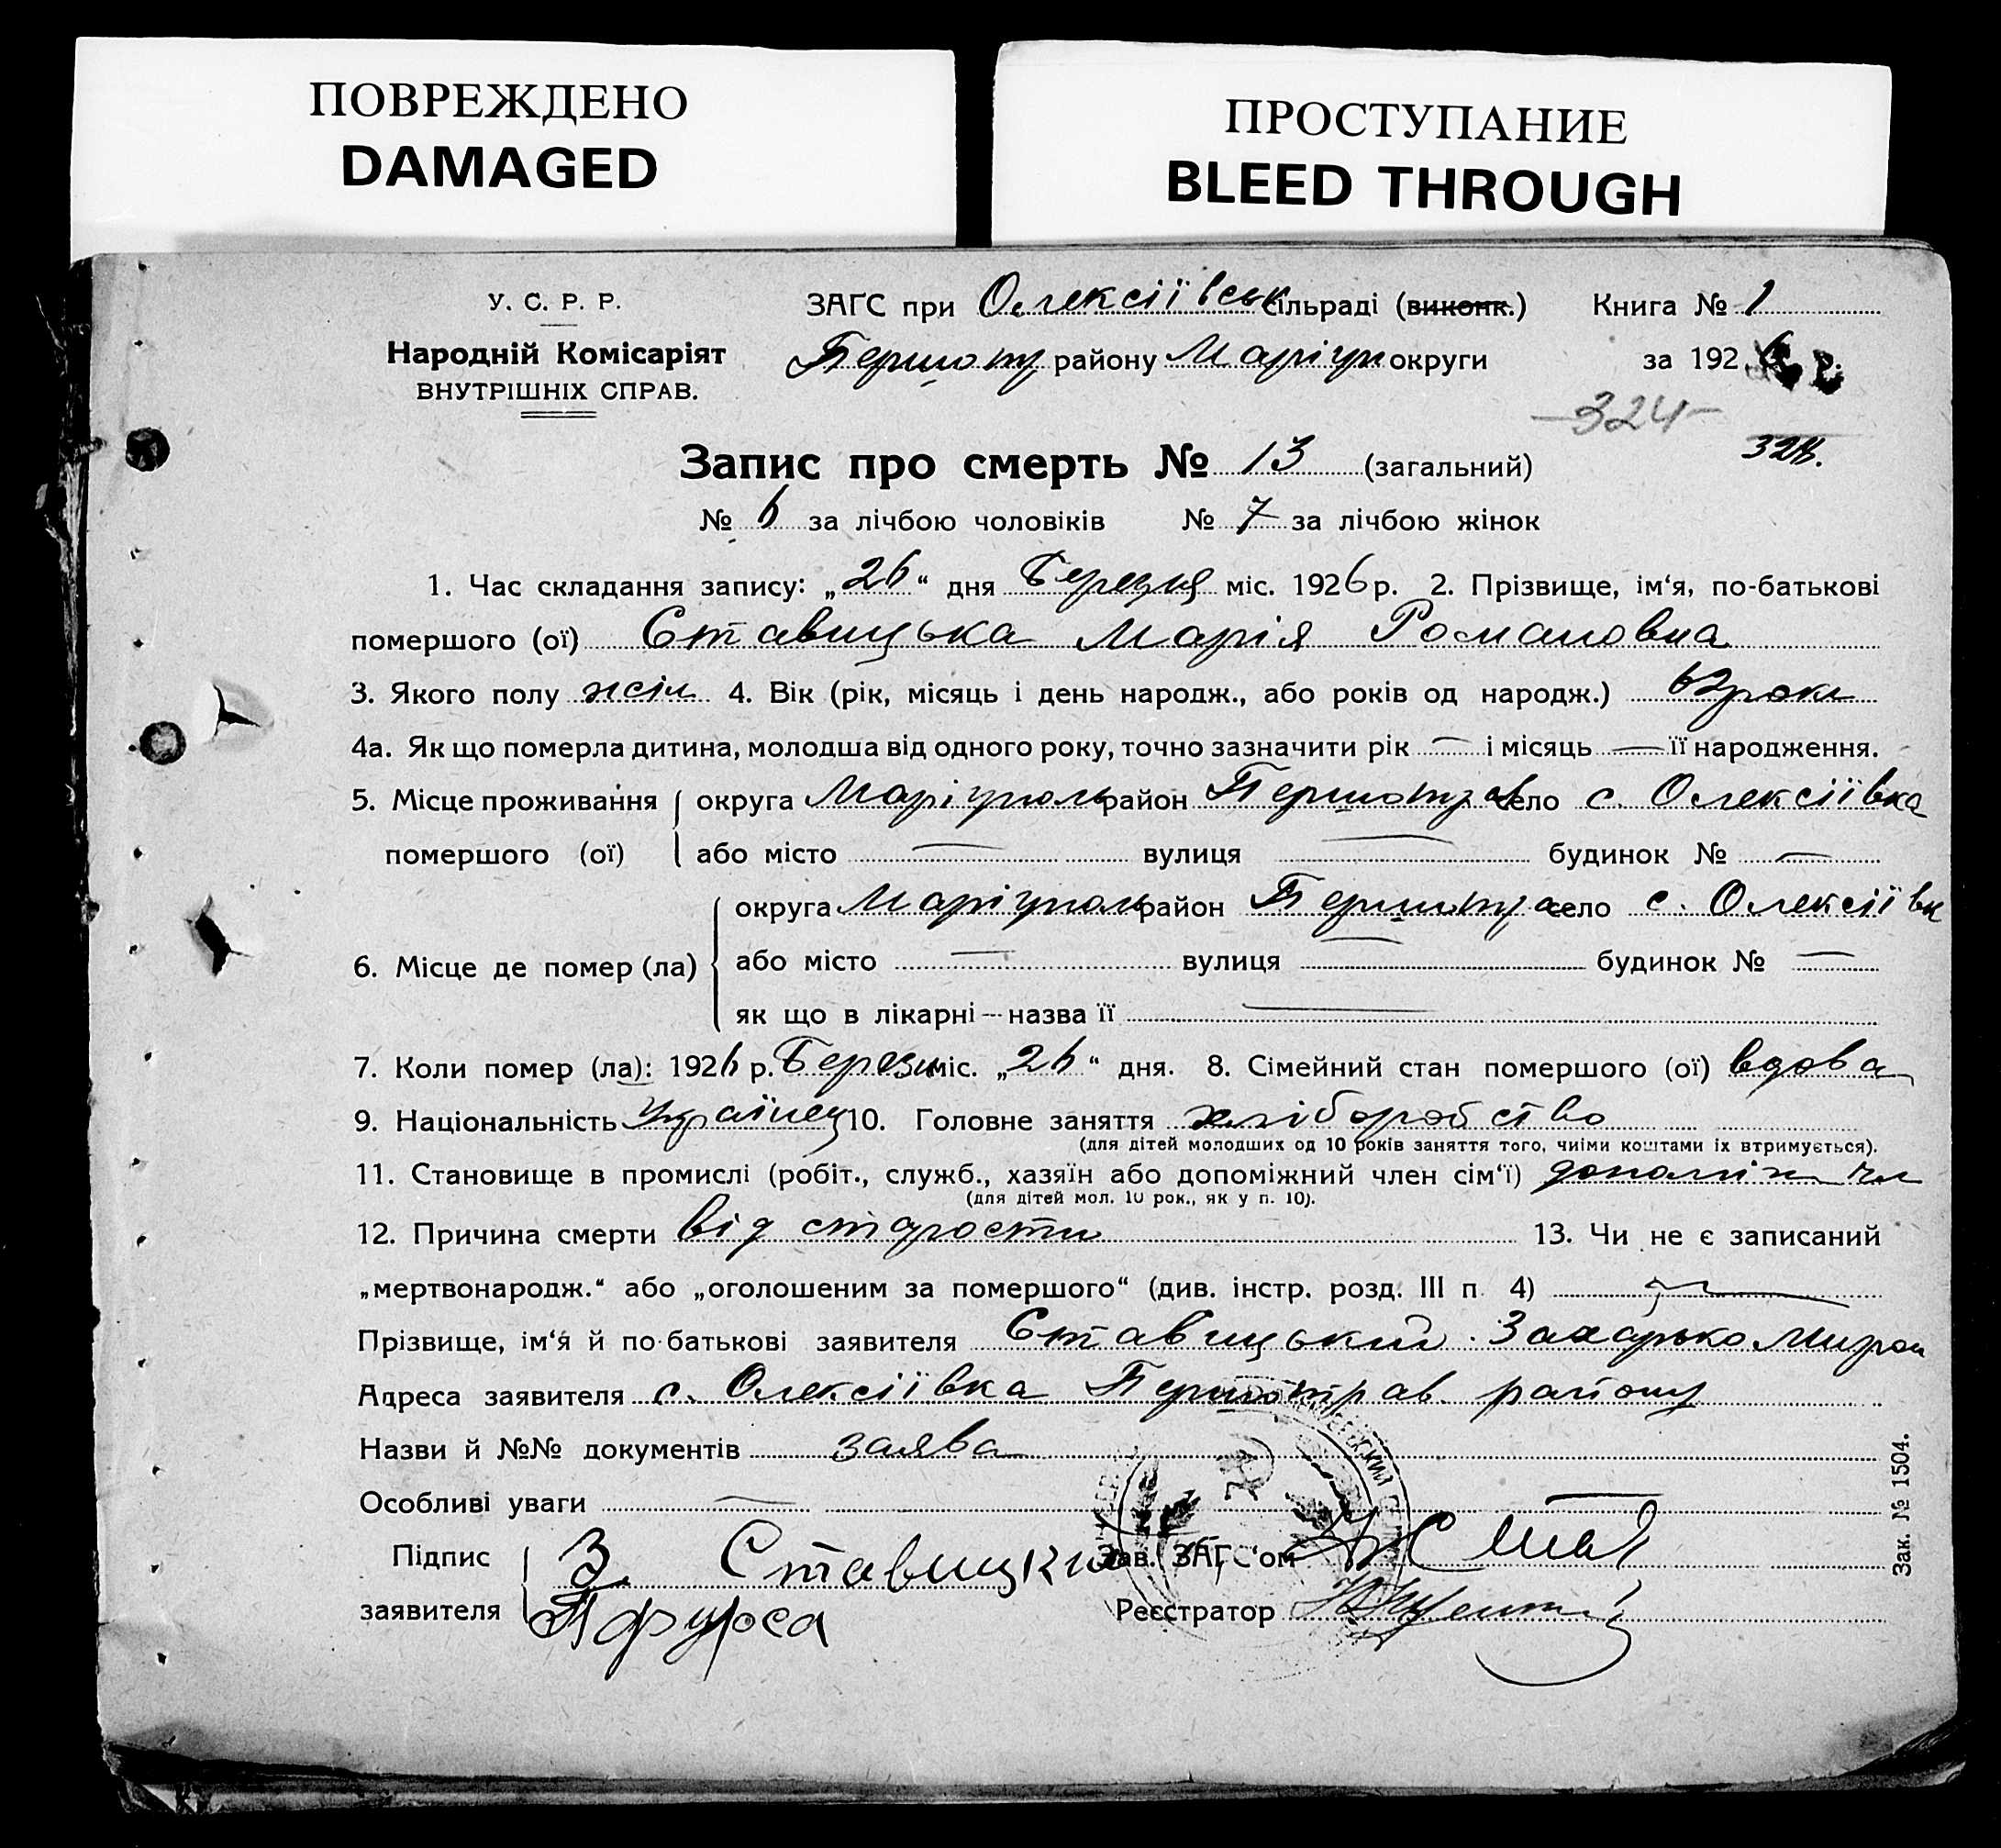 ПОВРЕЖДЕНО
DAMAGED
ПРОСТУПАНИЕ
BLEED THROUGH
У. С. Р. Р.
Народній Комісаріят
ВНУТРІШНІХ СПРАВ.
ЗАГС при Олексіївськ сільраді (виконк.) Книга № 1
Першотр району Маріуп округи за 1926 р.
-324-
324.
Запис про смерть № 13 (загальний)
№ 6 за лічбою чоловіків № 7 за лічбою жінок
1. Час складання запису: „26“ дня Березня міс. 1926 р. 2. Прізвище, ім‘я, по-батькові
помершого (ої) Ставицька Марія Романовна
3. Якого полу жін 4. Вік (рік, місяць і день народж., або років од народж.) 62 роки
4а. Як що померла дитина, молодша від одного року, точно зазначити рік — і місяць — її народження.
5. Місце проживання помершого (ої) округа Маріуполь район Першотрав село с. Олексіївка
або місто — вулиця — будинок № —
6. Місце де помер (ла) округа Маріуполь район Першотра село с. Олексіївк
або місто — вулиця — будинок № —
як що в лікарні — назва її —
7. Коли помер (ла): 1926 р. Березн міс. „26“ дня. 8. Сімейний стан помершого (ої) вдова
9. Національність Українец 10. Головне заняття хліборобство
(для дітей молодших од 10 років заняття того, чиїми коштами їх втримується).
11. Становище в промислі (робіт., служб., хазяїн або допоміжний член сім‘ї) допоміж чл
(для дітей мол. 10 рок., як у п. 10).
12. Причина смерти від старости 13. Чи не є записаний
„мертвонародж.“ або „оголошеним за помершого“ (див. інстр. розд. III п. 4) —
Прізвище, ім‘я й по-батькові заявителя Ставицький Захарько Мирон
Адреса заявителя с. Олексіївка Першотрав. району
Назви й №№ документів заява
Особливі уваги —
Підпис заявителя З Ставицкий
Зав. ЗАГС‘ом
Реєстратор
Зак. № 1504.